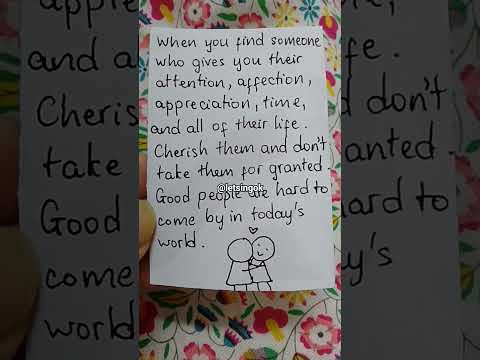 When you find someone
who gives you their
attention, affection,
appreciation, time,
and all of their life.
Cherish them and don't
take them for granted.
@letsingok
Good people are hard to
come by in today's
world.